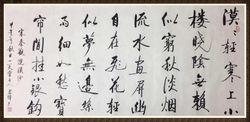 漠漠輕寒上小
樓曉陰無賴
似窮秋淡烟
流水畫屏幽
自在飛花輕
似夢無邊絲
雨細如愁寶
簾閒挂小銀鈎
宋秦觀浣溪沙